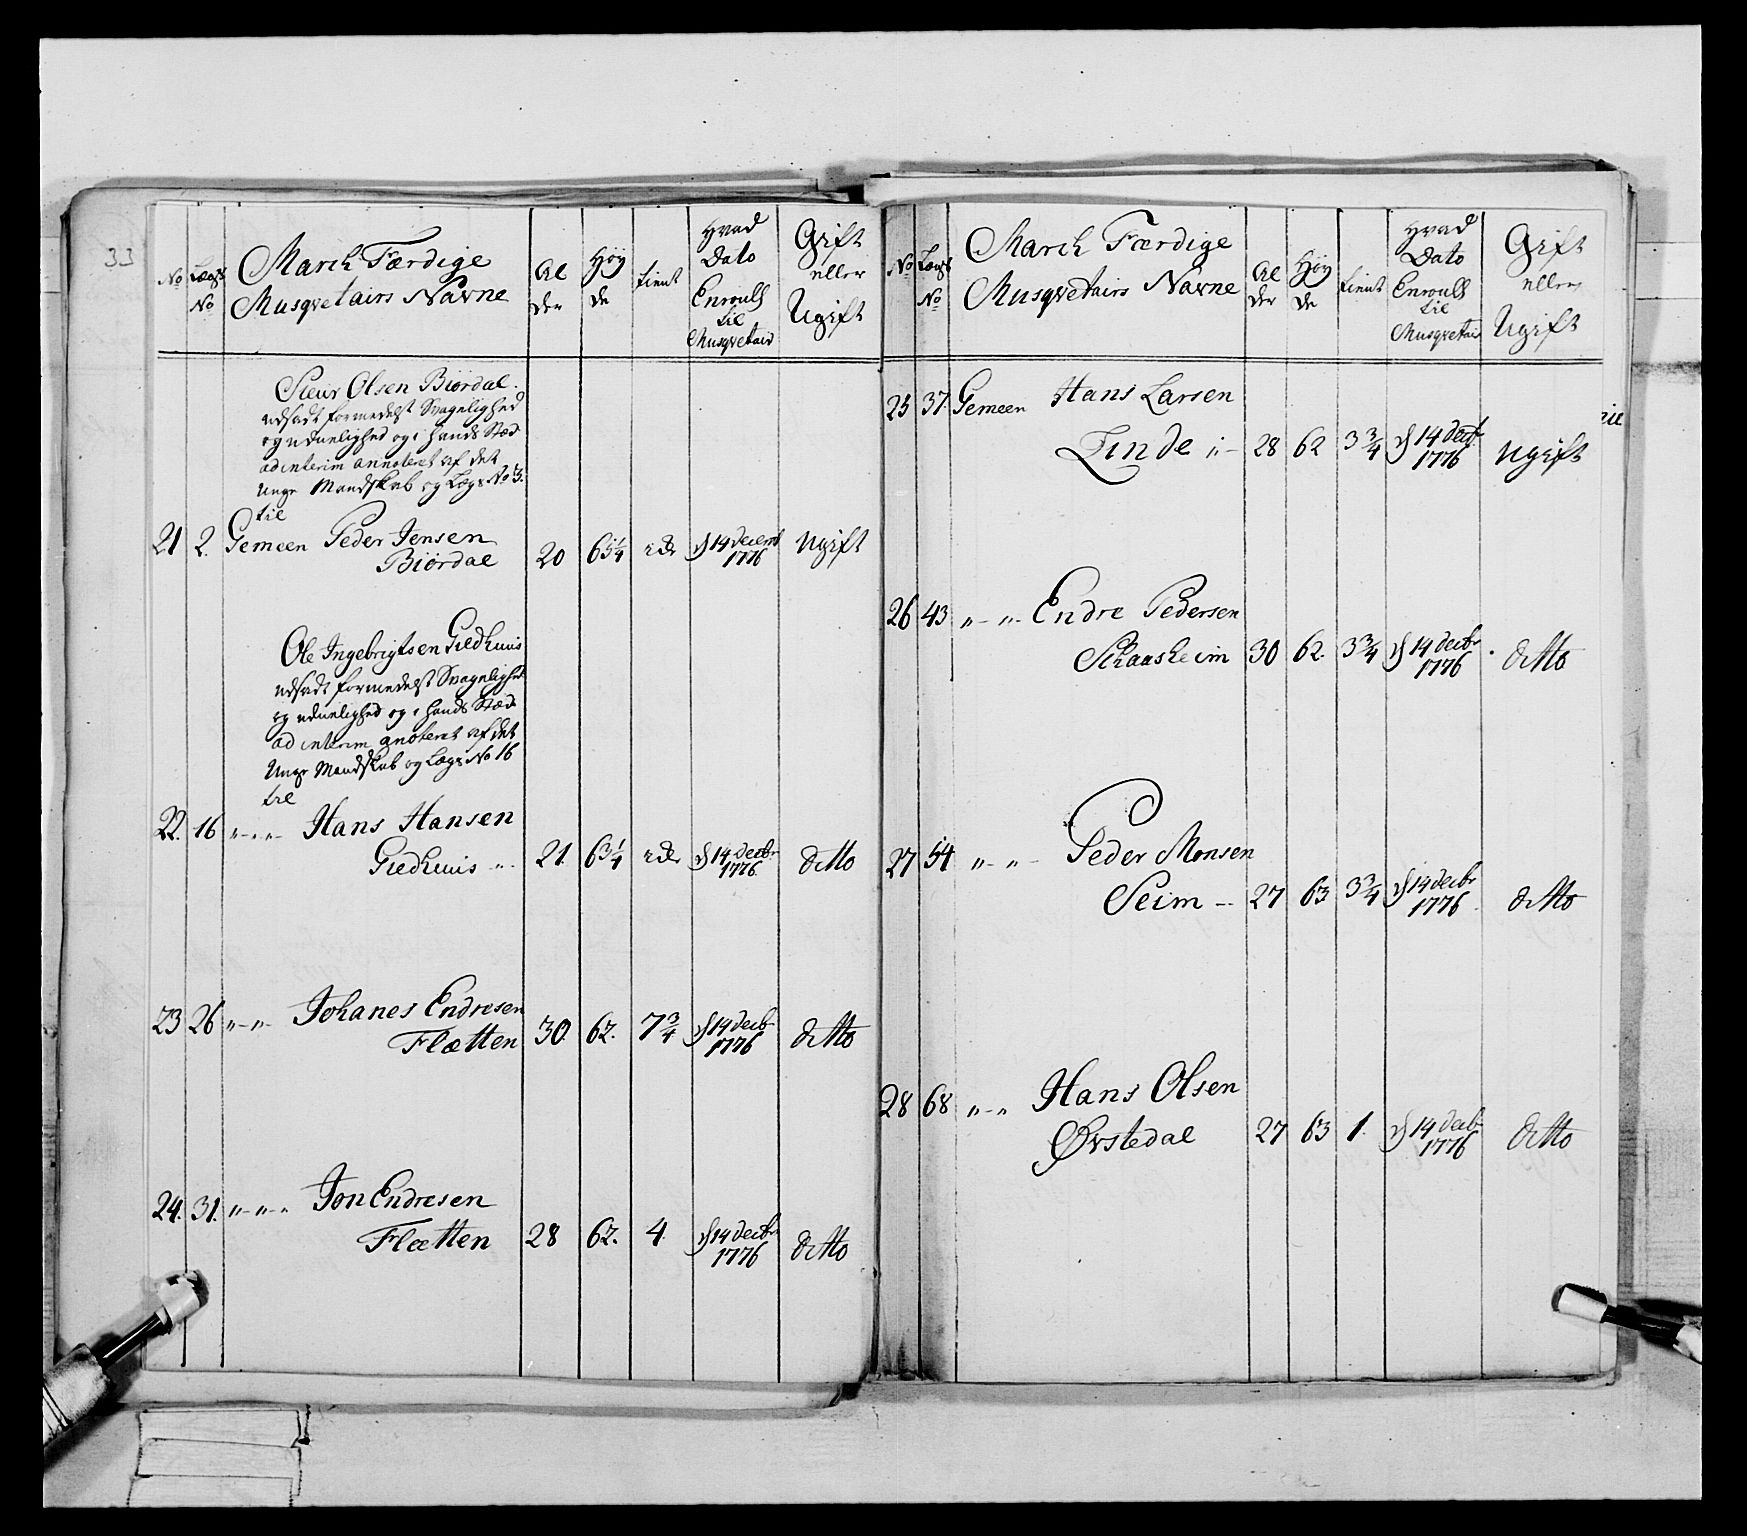 33
No Lægs No March Færdige Musqvetairs Navne Al der Høy de tient Hvad Dato Enroull til Musqvetair Gift eller Ugift
Siur Olsen Biørdal.
udsadt formedelst Svagelighed
og uduelighed og i hands Stæd
ad interim annoteret af det
Unge Mandskab og Lægs No 3.
til
21 2. Gemeen Peder Jensen
Biørdal 20 65¼ 14 decemb 1776 Ugift
Ole Ingebrigtsen Giedhuus
udsadt formedelst Svagelighed
og uduelighed og i hands Stæd
ad interim anoteret af det
Unge Mandskab og Lægs No 16
til
22. 16 „-„- Hans Hansen
Giedhuus 21. 63¼ 14 decbr 1776 ditto
23 26 „-„- Johanes Endresen
Flætten 30. 62. 7¾ 14 decbr 1776 ditto
24. 31. „-„-„ Jon Endresen
Flætten 28 62. 4. 14 decbr 1776 ditto
No Lægs No March Færdige Musqvetairs Navne Al der Høy de tient Hvad Dato Enroull til Musqvetair Gift eller Ugift
25 37 Gemeen Hans Larsen
Linde 28 62 3¾ 14 decbr 1776 Ugift
26 43 „-„- Endre Pedersen
Schaasheim 30 62. 3¾ 14 decbr 1776 ditto
27 54 „-„- Peder Monsen
Seim 27 63 3¾ 14 decbr 1776 ditto
28 68 „-„ Hans Olsen
Ørstedal 27 63 1. 14 decbr 1776 ditto